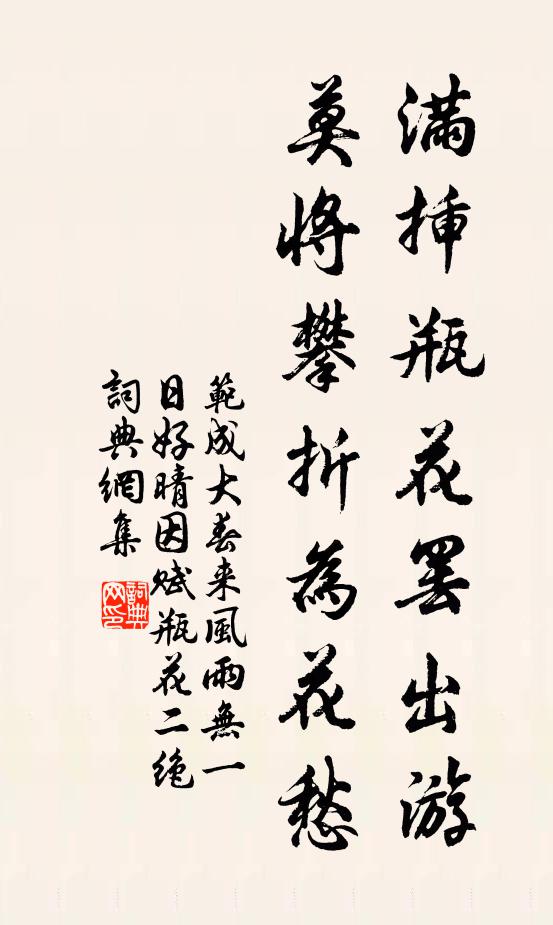 滿插瓶花罷出游
莫將攀折為花愁
範成大春来風雨無一
日好晴因赋瓶花二绝
詞典網集
詞典网印